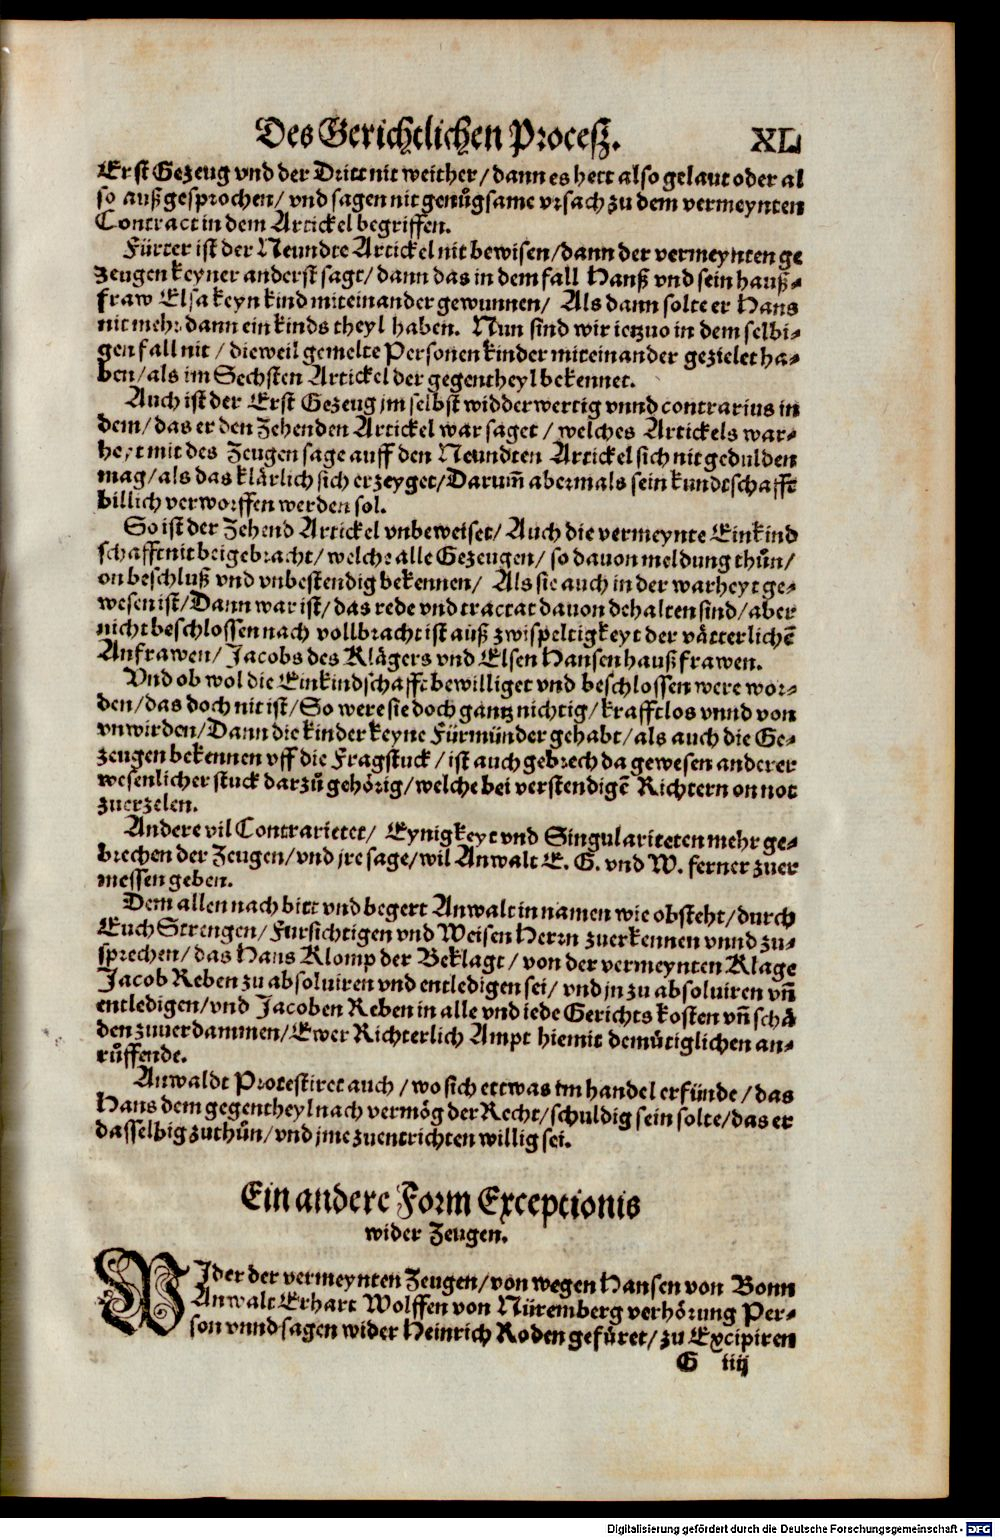 Des Gerichtlichen Proceſz. XL
Erſt Gezeug vnd der Dritt nit weither / dann es hett alſo gelaut oder al
ſo außgeſprochen / vnd ſagen nit genuͦgſame vrſach zu dem vermeynten
Contract in dem Artickel begriffen.
Fürter iſt der Neundte Artickel nit bewiſen / dann der vermeynten ge
zeugen keyner anderſt ſagt / dann das in dem fall Hanß vnd ſein hauß⸗
fraw Elſa keyn kind miteinander gewunnen / Als dann ſolte er Hans
nit mehr dann ein kinds theyl haben. Nun ſind wir ietzuo in dem ſelbi⸗
gen fall nit / dieweil gemelte Perſonen kinder miteinander gezielet ha⸗
ben / als im Sechſten Artickel der gegentheyl bekennet.
Auch iſt der Erſt Gezeug jm ſelbſt widderwertig vnnd contrarius in
dem / das er den Zehenden Artickel war ſaget / welches Artickels war⸗
heyt mit des Zeugen ſage auff den Neundten Artickel ſich nit gedulden
mag / als das klärlich ſich erzeyget / Darum̄ abermals ſein kundtſchafft
billich verworffen werden ſol.
So iſt der Zehend Artickel vnbeweiſet / Auch die vermeynte Einkind
ſchafft nit beigebracht / welche alle Gezeugen / ſo dauon meldung thuͦn /
on beſchluß vnd vnbeſtendig bekennen / Als ſie auch in der warheyt ge⸗
weſen iſt / Dann war iſt / das rede vnd tractat dauon dehalten ſind / aber
nicht beſchloſſen nach vollbracht iſt auß zwiſpeltigkeyt der vätterlichē
Anfrawen / Jacobs des Klägers vnd Elſen Hanſen haußfrawen.
Vnd ob wol die Einkindſchafft bewilliget vnd beſchloſſen were wor⸗
den / das doch nit iſt / So were ſie doch gantz nichtig / krafftlos vnnd von
vnwirden / Dann die kinder keyne Fürmünder gehabt / als auch die Ge⸗
zeugen bekennen vff die Fragſtuck / iſt auch gebrech da geweſen anderer
weſenlicher ſtuck darzuͦ gehörig / welche bei verſtendigē Richtern on not
zuerzelen.
Andere vil Contrarietet / Eynigkeyt vnd Singulariteten mehr ge⸗
brechen der Zeugen / vnd jre ſage / wil Anwalt E. G. vnd W. ferner zuer
meſſen geben.
Dem allen nach bitt vnd begert Anwalt in namen wie obſteht / durch
Euch Strengen / Furſichtigen vnd Weiſen Herrn zuerkennen vnnd zu⸗
ſprechen / das Hans Klomp der Beklagt / von der vermeynten Klage
Jacob Reben zu abſoluiren vnd entledigen ſei / vnd jn zu abſoluiren vn̄
entledigen / vnd Jacoben Reben in alle vnd iede Gerichts koſten vn̄ ſchä
den zuuerdammen / Ewer Richterlich Ampt hiemit demütiglichen an⸗
ruͦffende.
Anwaldt Proteſtiret auch / wo ſich ettwas im handel erfünde / das
Hans dem gegentheyl nach vermög der Recht / ſchuldig ſein ſolte / das er
daſſelbig zuthuͦn / vnd jme zuentrichten willig ſei.
Ein andere Form Exceptionis
wider Zeugen.
WIder der vermeynten Zeugen / von wegen Hanſen von Bonn
Anwalt Erhart Wolffen von Nüremberg verhörung Per⸗
ſon vnnd ſagen wider Heinrich Roden gefüret / zu Excipiren
G iiij
Digitalisierung gefördert durch die Deutsche Forschungsgemeinschaft - DFG